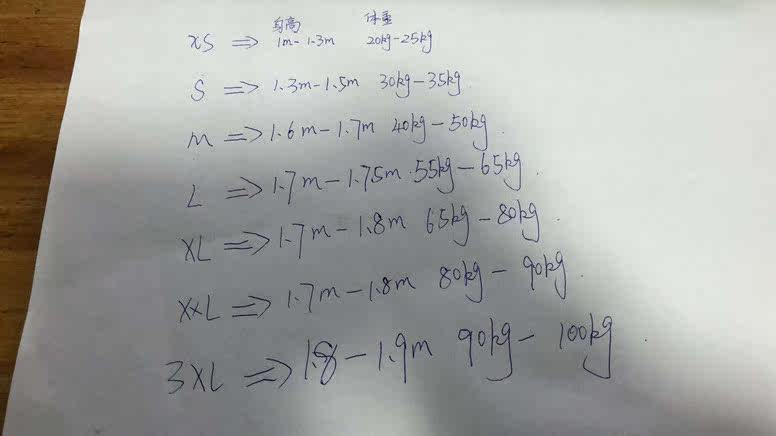 身高 体重
XS => 1m-1.3m 20kg-25kg
S => 1.3m-1.5m 30kg-35kg
M => 1.6m-1.7m 40kg-50kg.
L => 1.7m-1.75m.55kg-65kg.
XL => 1.7m-1.8m 65kg-80kg.
XXL => 1.7m-1.8m 80kg-90kg.
3XL => 1.8-1.9m 90kg-100kg.